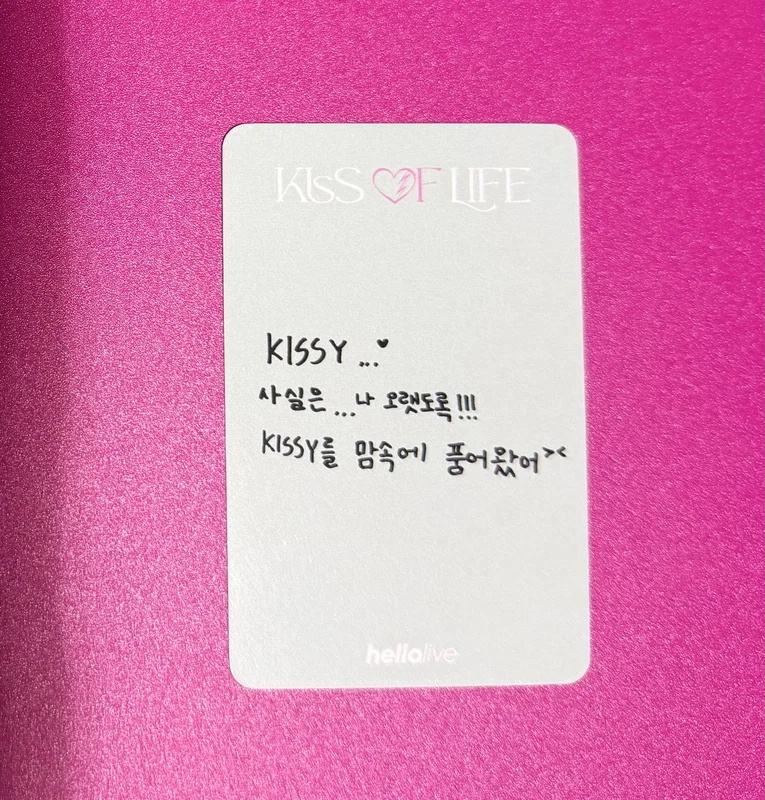 KISS OF LIFE
KISSY ...♥
사실은 ...나 오랫도록!!!
KISSY를 맘속에 품어왔어><
hellolive